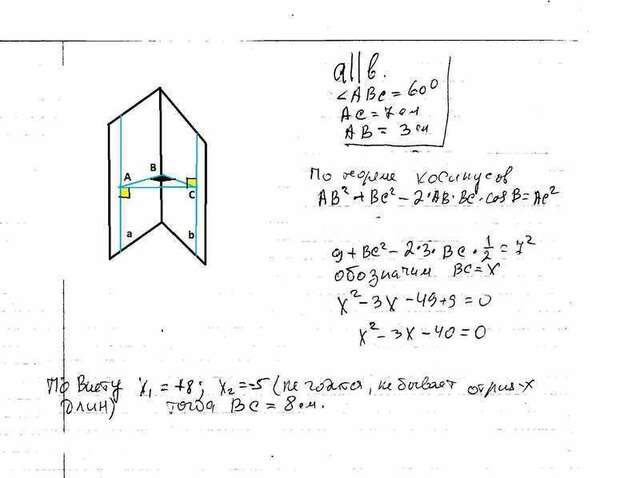 a||b.
∠ABC = 60°
AC = 7 см
AB = 3 см
A
B
C
a
b
По теореме косинусов
AB² + BC² - 2·AB·BC·cos B = AC²
9 + BC² - 2·3·BC·1/2 = 7²
обозначим BC = x
x² - 3x - 49 + 9 = 0
x² - 3x - 40 = 0
По Виету x₁ = +8; x₂ = -5 (не годится, не бывает отриц-х
длин) тогда BC = 8 см.